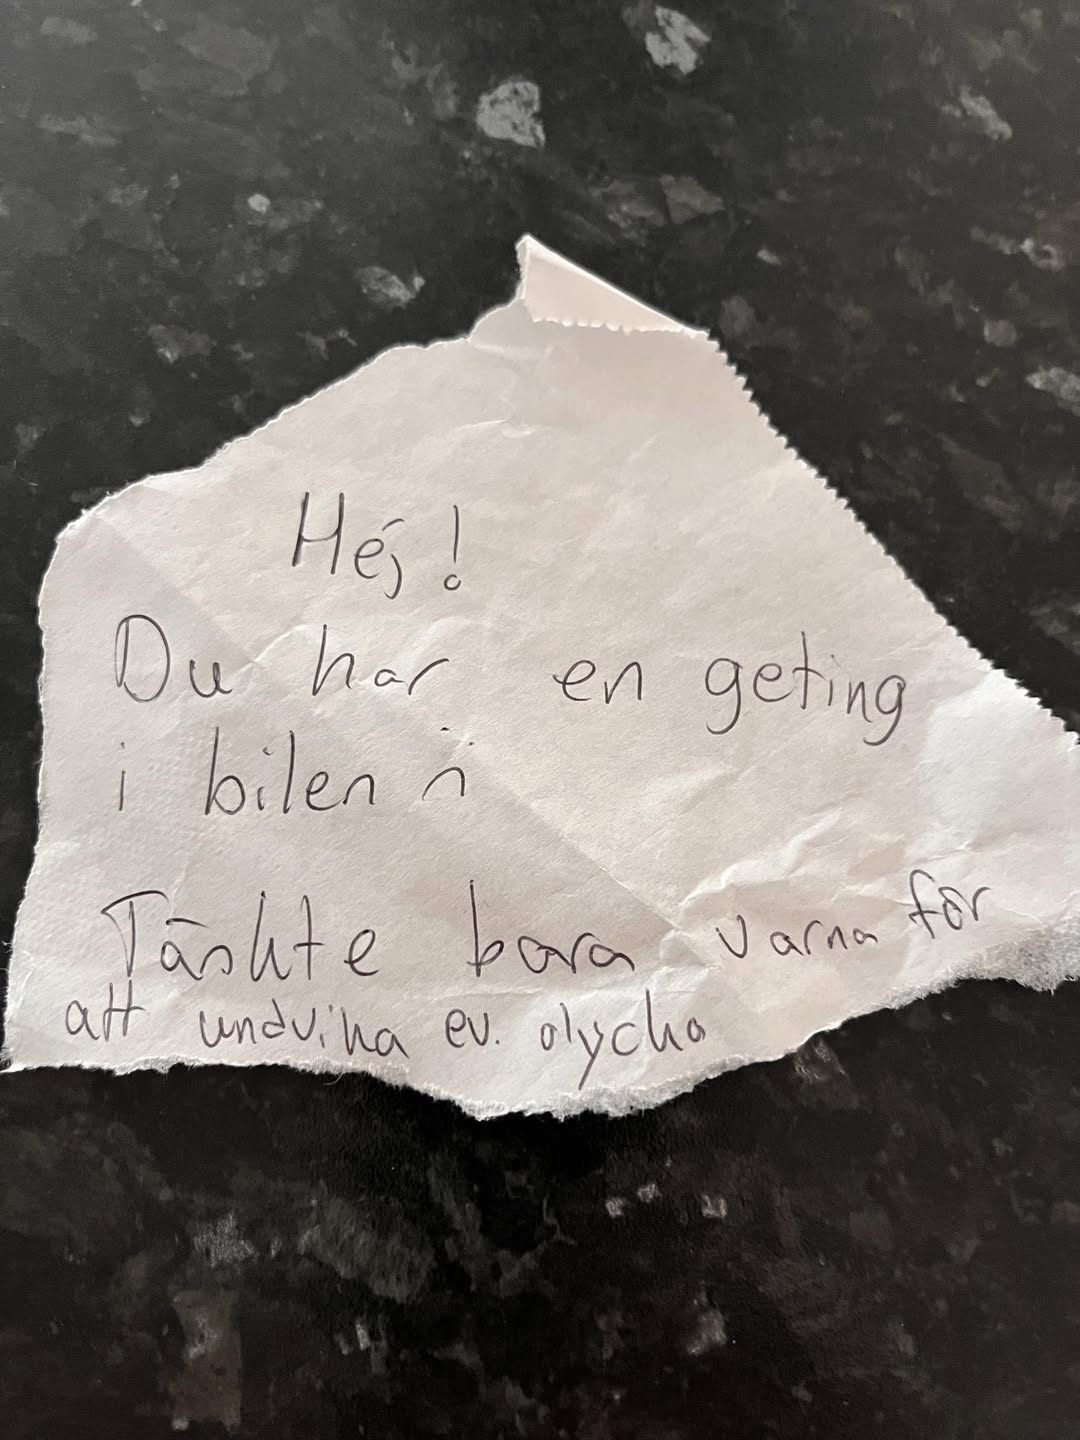 Hej!
Du har en geting
i bilen ¨∩
Tänkte bara varna för
att undvika ev. olycka